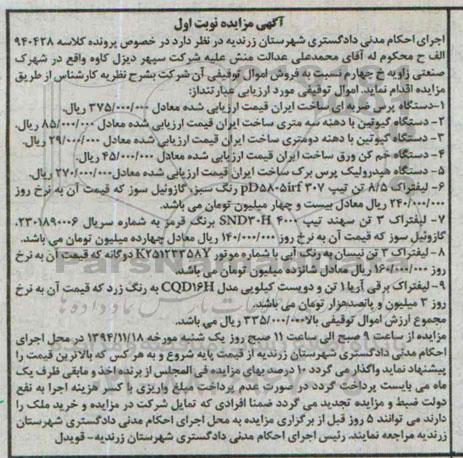 آگهی مزایده نوبت اول
اجرای احکام مدنی دادگستری شهرستان زرندیه در نظر دارد در خصوص پرونده کلاسه ۹۴۰۴۲۸
الف ح محکوم له آقای محمدعلی عدالت منش علیه شرکت سپهر دیزل کاوه واقع در شهرک
صنعتی زاویه خ چهارم نسبت به فروش اموال توقیفی آن شرکت بشرح نظریه کارشناس از طریق
مزایده اقدام نماید. اموال توقیفی مورد ارزیابی عبارتنداز:
۱-دستگاه پرس ضربه ای ساخت ایران قیمت ارزیابی شده معادل ۳۷۵/۰۰۰/۰۰۰ ریال.
۲- دستگاه گیوتین با دهنه سه متری ساخت ایران قیمت ارزیابی شده معادل ۸۵/۰۰۰/۰۰۰ ریال.
۳- دستگاه گیوتین با دهنه دومتری ساخت ایران قیمت ارزیابی شده معادل ۲۹/۰۰۰/۰۰۰ ریال.
۴- دستگاه خم کن ورق ساخت ایران قیمت ارزیابی شده معادل ۴۵/۰۰۰/۰۰۰ ریال.
۵- دستگاه هیدرولیک پرس برک ساخت ایران قیمت ارزیابی شده معادل ۲۷۰/۰۰۰/۰۰۰ریال.
۶- لیفتراک ۸/۵ تن تیپ pD۵۸۰۵irf ۳۰۷ رنگ سبز، گازوئیل سوز که قیمت آن به نرخ روز
۲۴۰/۰۰۰/۰۰۰ ریال معادل بیست و چهار میلیون تومان می باشد.
۷- لیفتراک ۳ تن سهند تیپ ۴۰۰ SND۳۰H برنگ قرمز به شماره سریال ۲۳۰۱۸۹۰۰۶.
گازوئیل سوز که قیمت آن به نرخ روز ۱۴۰/۰۰۰/۰۰۰ ریال معادل چهارده میلیون تومان می باشد.
۸- لیفتراک ۳ تن نیسان به رنگ آبی با شماره موتور K۲۵۱۲۲۳۵۸Y دوگانه که قیمت آن به نرخ
روز ۱۶۰/۰۰۰/۰۰۰ ریال معادل شانزده میلیون تومان می باشد.
۹- لیفتراک برقی آریا ۱ تن و دویست کیلویی مدل CQD۱۶H به رنگ زرد که قیمت آن به نرخ
روز ۳ میلیون و پانصدهزار تومان می باشد.
مجموع ارزش اموال توقیفی بالا ۳۳۵/۰۰۰/۰۰۰ ریال می باشد.
مزایده از ساعت ۱۰ صبح الی ساعت ۱۱ صبح روز یک شنبه مورخه ۱۳۹۴/۱۱/۱۸ در محل اجرای
احکام مدنی دادگستری شهرستان زرندیه از قیمت پایه شروع و به هر کس که بالاترین قیمت را
پیشنهاد نماید واگذار می گردد ۱۰ درصد بهای مزایده فی المجلس از برنده اخذ و مابقی ظرف یک
ماه می بایست پرداخت گردد در صورت عدم پرداخت مبلغ واریزی با کسر هزینه اجرا به نفع
دولت ضبط و مزایده تجدید می گردد ضمنا افرادی که تمایل شرکت در مزایده و خرید ملک را
دارند می توانند ۵ روز قبل از برگزاری مزایده به محل اجرای احکام مدنی دادگستری شهرستان
زرندیه مراجعه نمایند. رئیس اجرای احکام مدنی دادگستری شهرستان زرندیه- قویدل